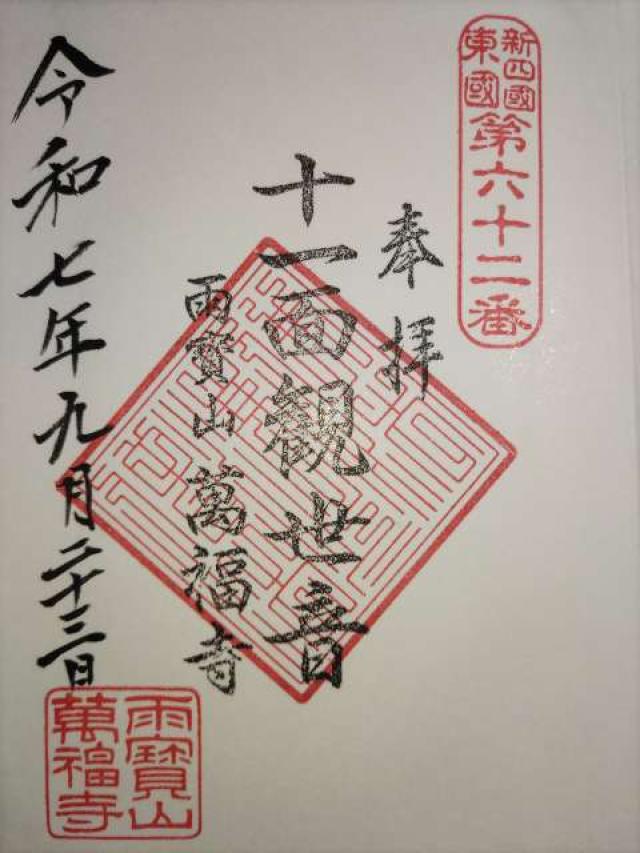 新四國
東國
第六十二番
奉拝
十一面観世音
雨寳山 萬福寺
令和七年九月二十三日
雨寶山
萬福寺